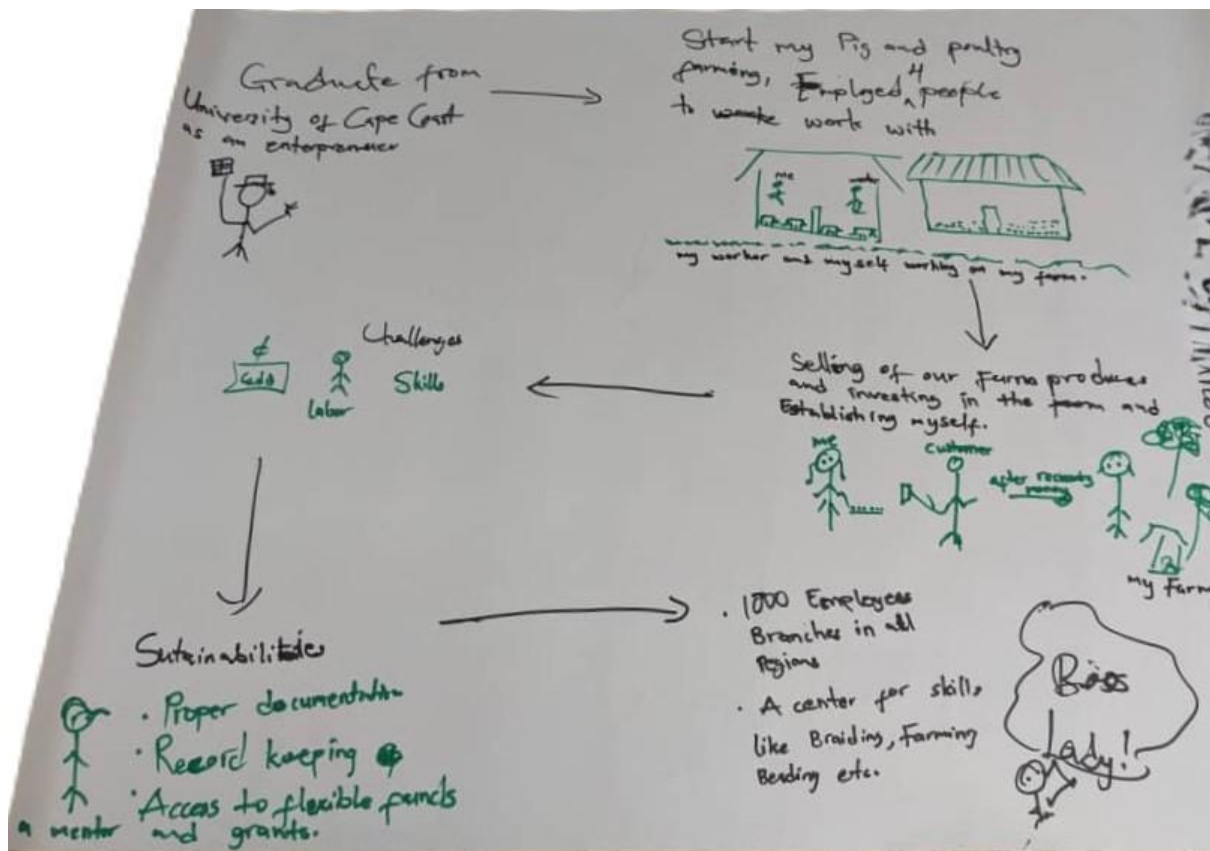 Graduate from
University of Cape Coast
as an enterpreneur
Start my Pig and poultry
farming, Employed 4 people
to work with
me
my worker and myself working on my farm.
Selling of our Farm produces
and investing in the farm and
Establishing myself.
me
customer
after
my Farm
Challenges
¢
Cedis
Labor
Skills
Sutainabilities
• Proper documentation
• Record keeping
• Access to flexible funds
and grants.
a mentor
• 1000 Employees
Branches in all
Regions
• A center for skills
like Braiding, Farming
Beading etc.
Boss
Lady!